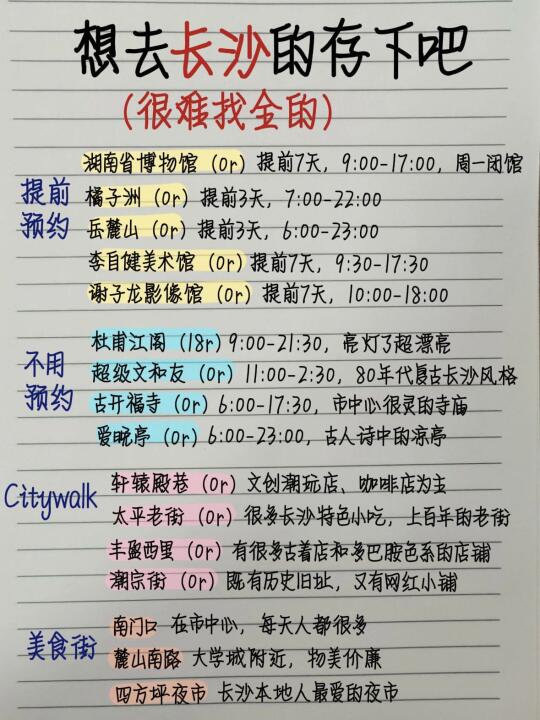 想去长沙的存下吧
(很难找全的)
提前
预约
湖南省博物馆 (0r) 提前7天, 9:00-17:00, 周一闭馆
橘子洲 (0r) 提前3天, 7:00-22:00
岳麓山 (0r) 提前3天, 6:00-23:00
李自健美术馆 (0r) 提前7天, 9:30-17:30
谢子龙影像馆 (0r) 提前7天, 10:00-18:00
不用
预约
杜甫江阁 (18r) 9:00-21:30, 亮灯了超漂亮
超级文和友 (0r) 11:00-2:30, 80年代复古长沙风格
古开福寺 (0r) 6:00-17:30, 市中心很灵的寺庙
爱晚亭 (0r) 6:00-23:00, 古人诗中的凉亭
Citywalk
轩辕殿巷 (0r) 文创潮玩店、咖啡店为主
太平老街 (0r) 很多长沙特色小吃, 上百年的老街
丰盈西里 (0r) 有很多古着店和多巴胺色系的店铺
潮宗街 (0r) 既有历史旧址, 又有网红小铺
美食街
南门口 在市中心, 每天人都很多
麓山南路 大学城附近, 物美价廉
四方坪夜市 长沙本地人最爱的夜市